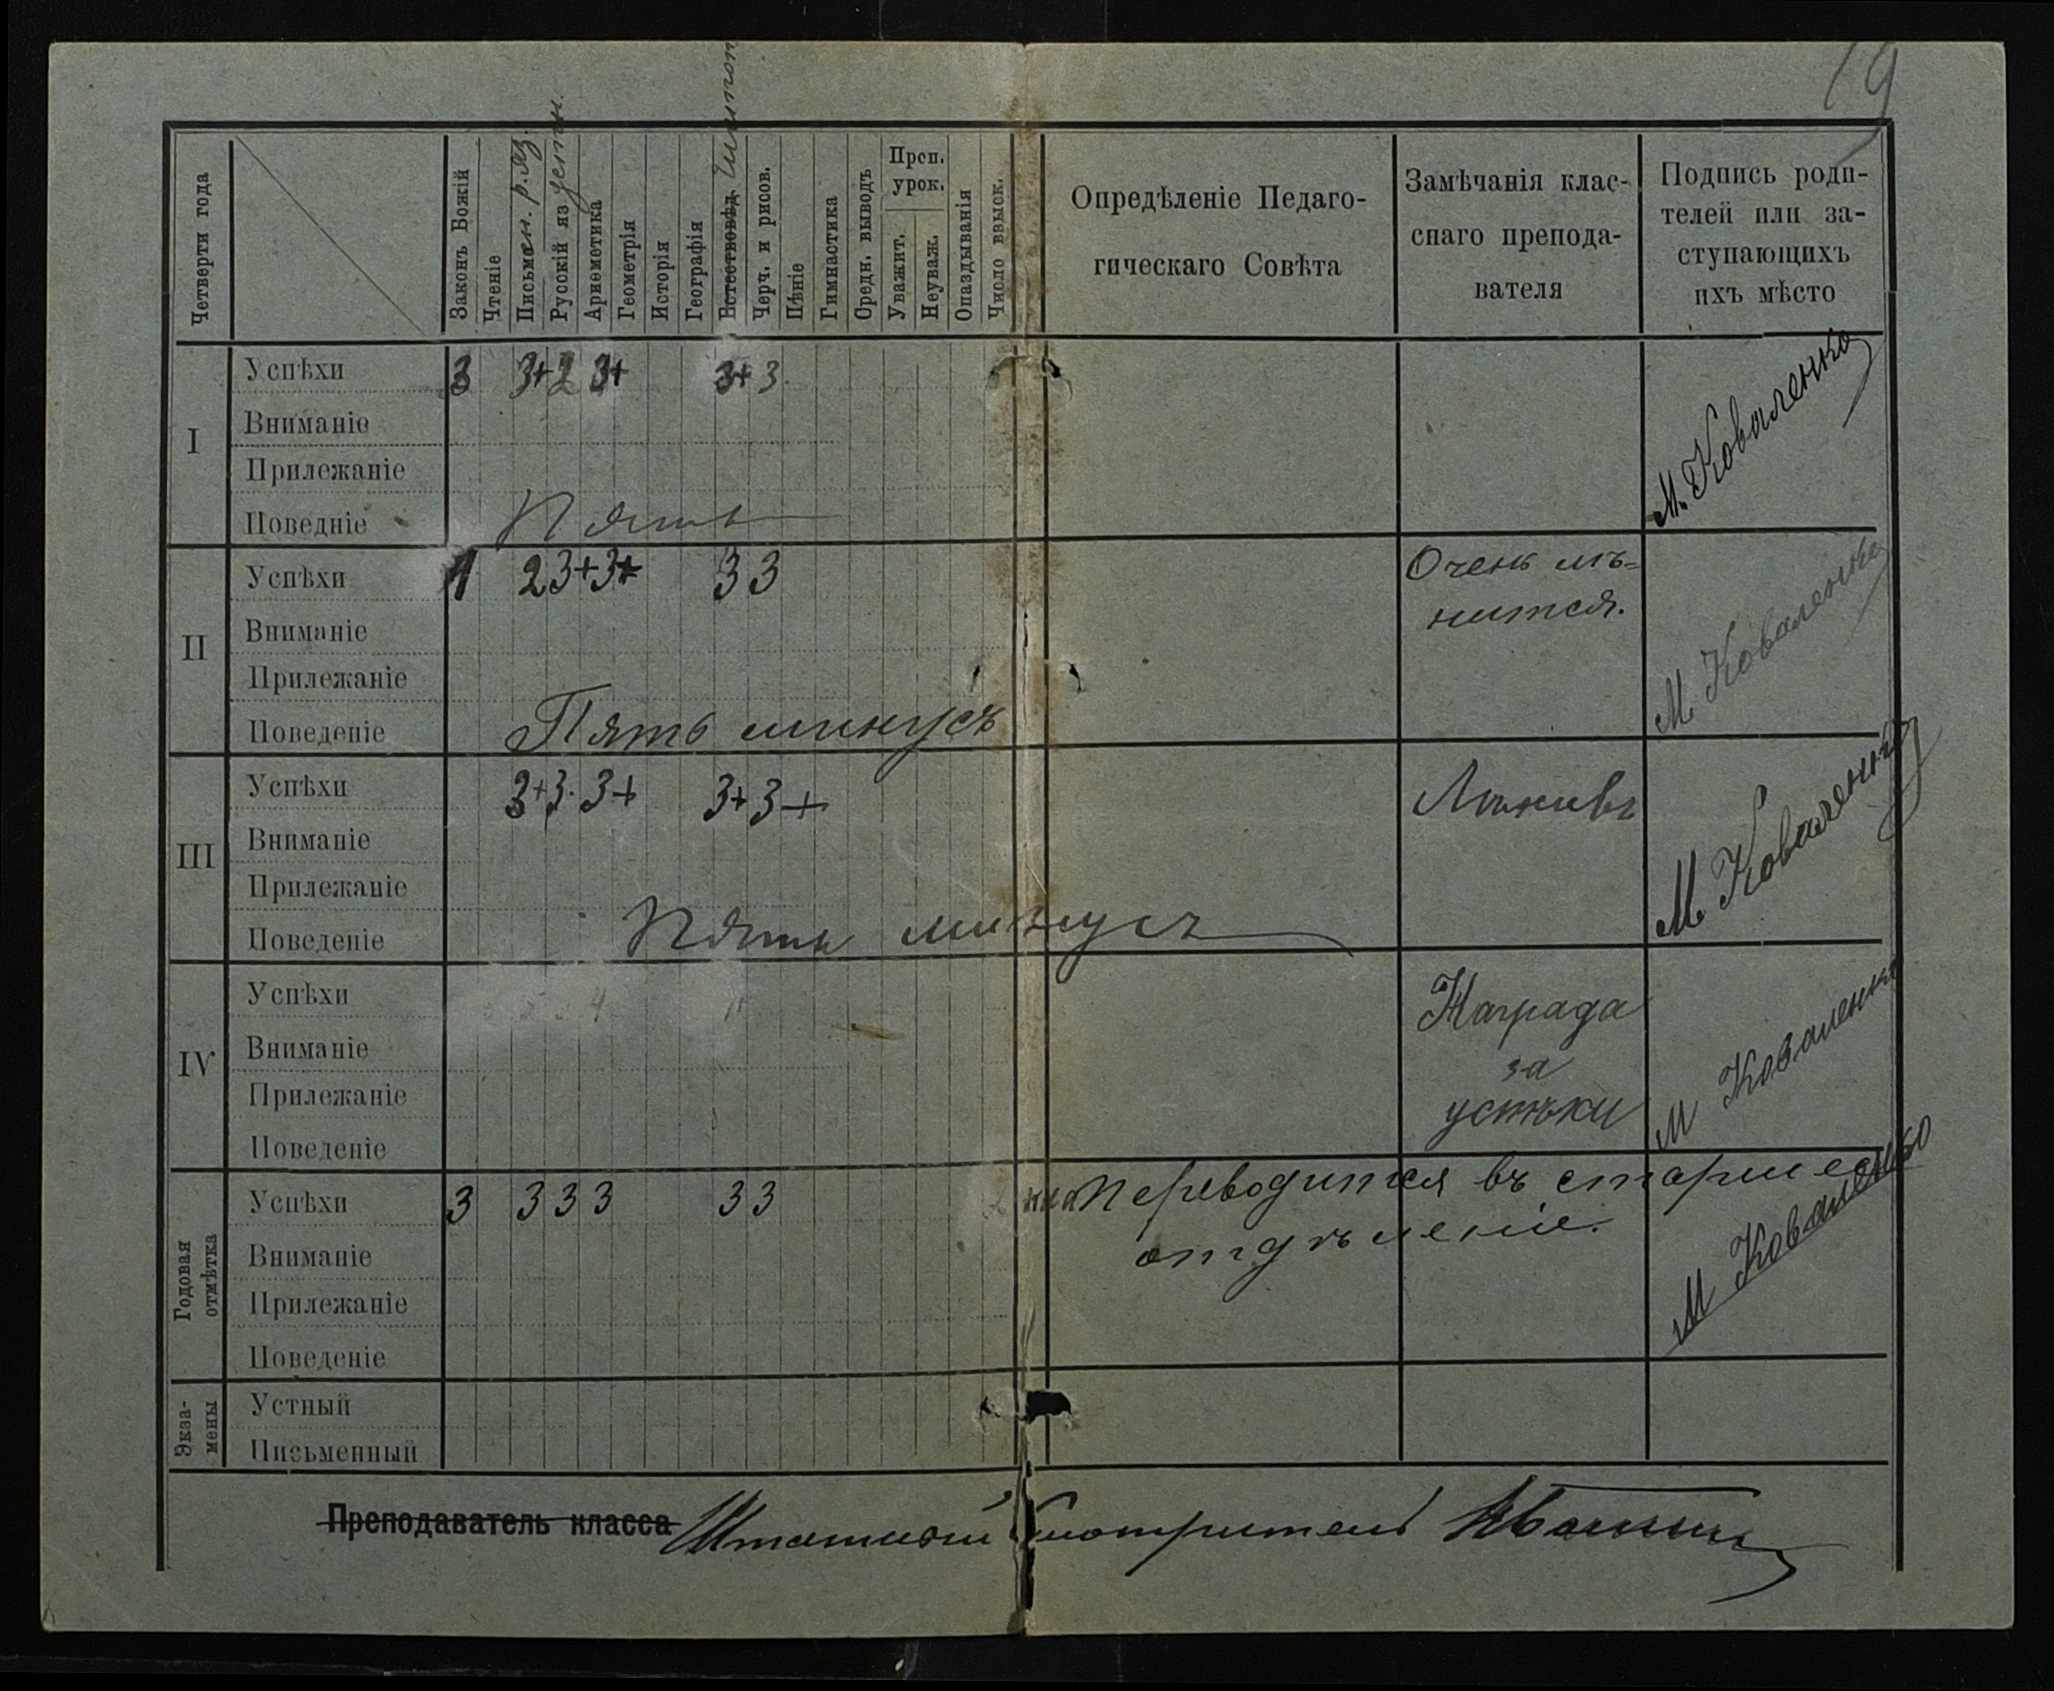 19
Четверти года
Законъ Божій
Чтеніе
Письмен. р. яз.
Русскій яз устн.
Ариѳметика
Геометрія
Исторія
Географія
Естествовѣд.
Черч. и рисов.
Пѣніе
Гимнастика
Средн. выводъ
Проп.
урок.
Уважит.
Неуваж.
Опаздыванія
Число взыск.
Опредѣленіе Педаго-
гическаго Совѣта
Замѣчанія клас-
снаго препода-
вателя
Подпись роди-
телей или за-
ступающихъ
ихъ мѣсто
I
Успѣхи 3 3+ 2 3+ 3+ 3
Вниманіе
Прилежаніе
Поведніе Пять
М. Коваленко
II
Успѣхи 1 2 3+ 3+ 3 3
Вниманіе
Прилежаніе
Поведеніе Пять минусъ
Очень лѣ=
нится.
М. Коваленко
III
Успѣхи 3+ 3. 3+ 3+ 3+
Вниманіе
Прилежаніе
Поведеніе Пять минусъ
Лѣнивъ
М. Коваленко
IV
Успѣхи
Вниманіе
Прилежаніе
Поведеніе
Награда
за
успѣхи
М Коваленко
Годовая
отмѣтка
Успѣхи 3 3 3 3 3 3
Вниманіе
Прилежаніе
Поведеніе
Переводится въ старшее
отдѣленіе.
М Коваленко
Экза-
мены
Устный
Письменный
Преподаватель класса Штатный Смотритель